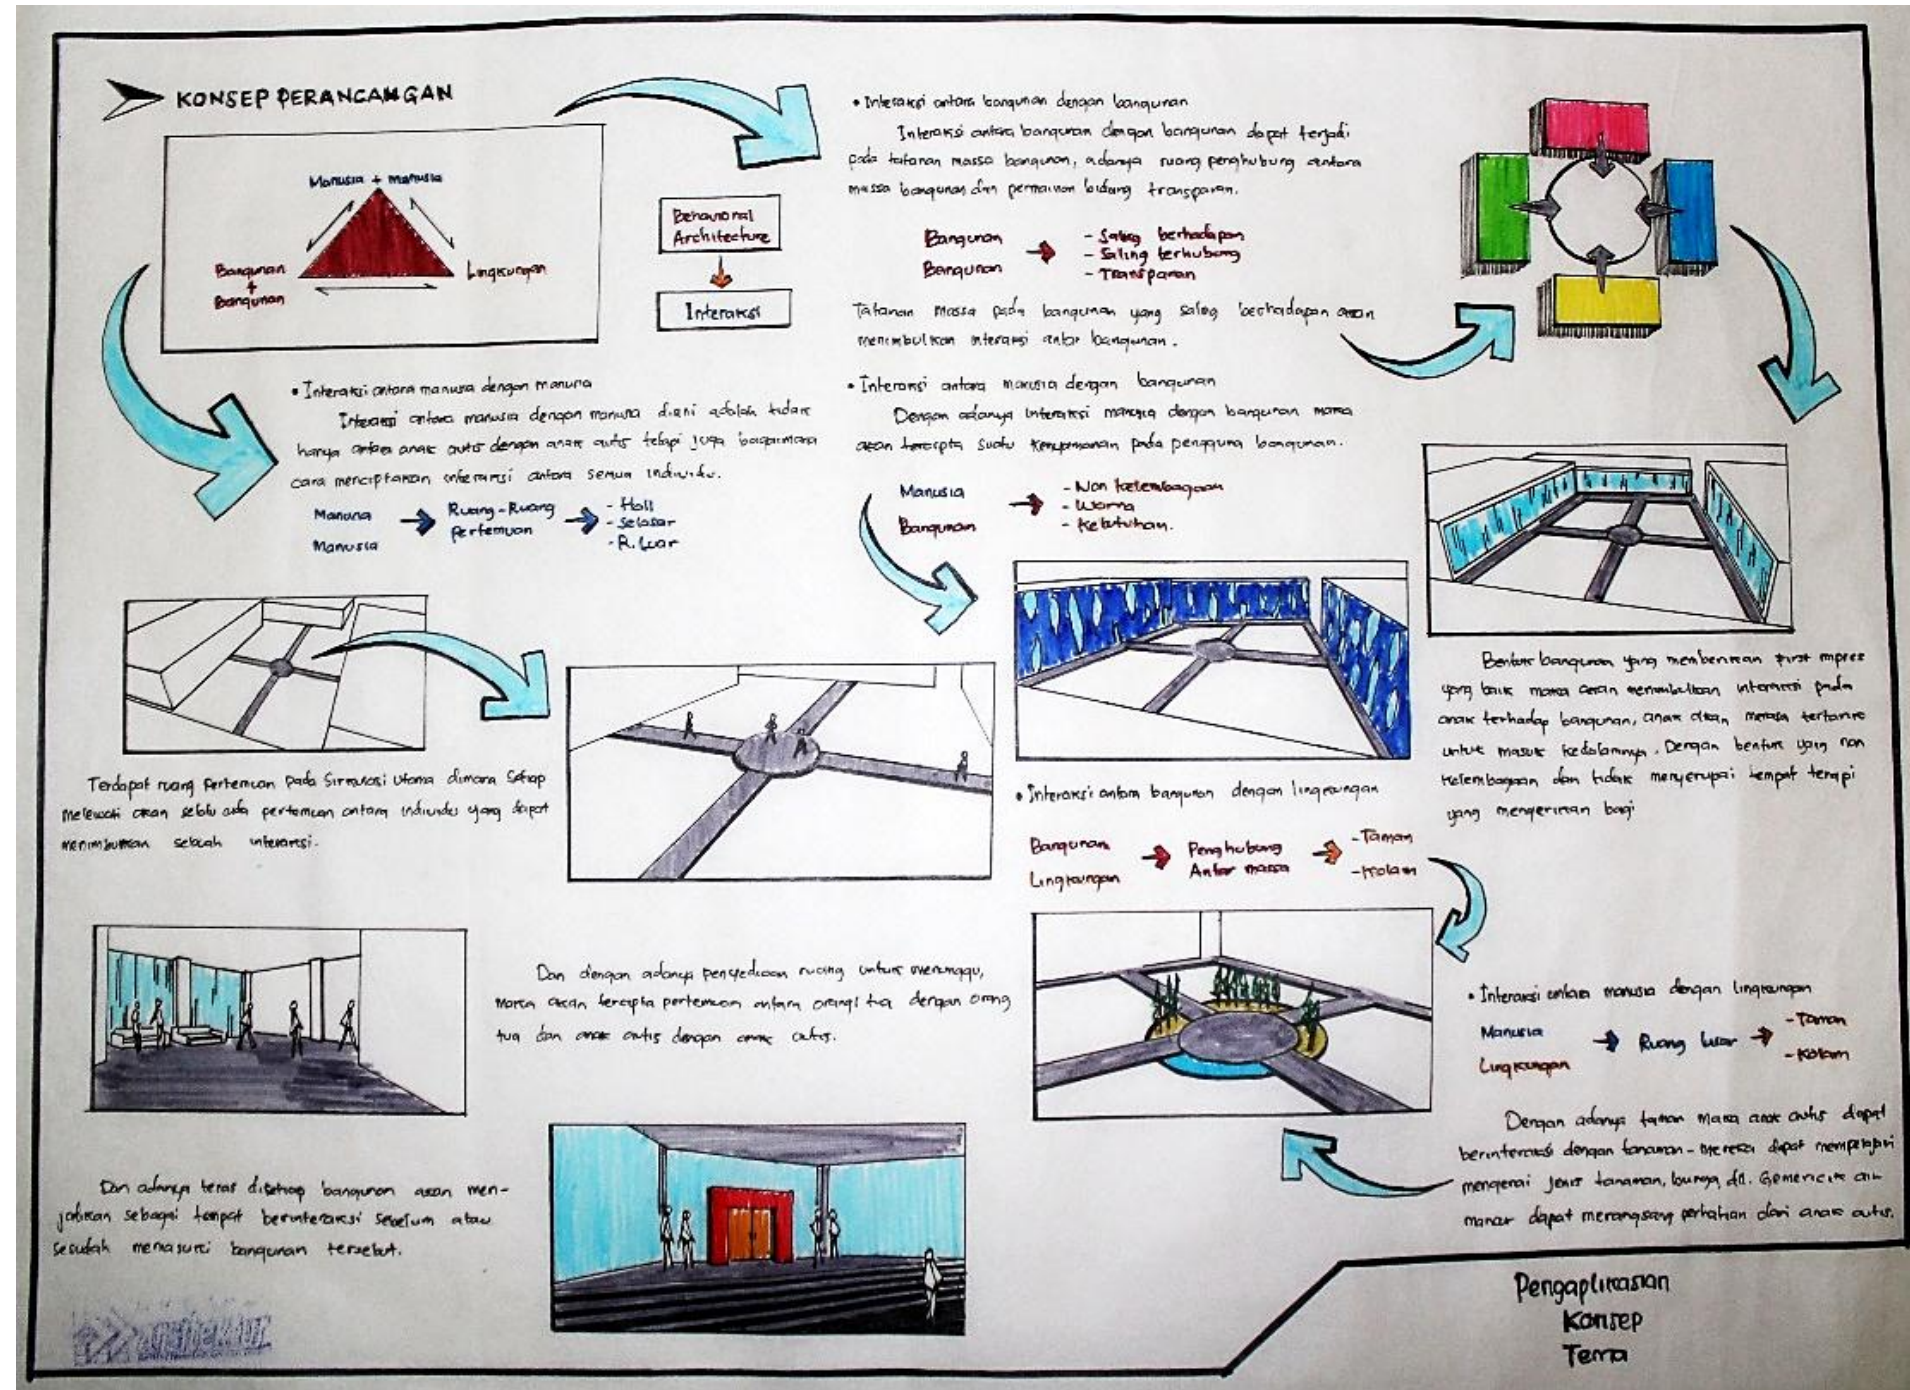 KONSEP PERANCANGAN
Manusia + manusia
Bangunan
+
Bangunan
Lingkungan
Behavioral
Architecture
Interaksi
• Interaksi antara manusia dengan manusia
Interaksi antara manusia dengan manusia disini adalah tidak
hanya antara anak autis dengan anak autis tetapi juga bagaimana
cara menciptakan interaksi antara semua individu.
Manusia
Manusia
Ruang-Ruang
Pertemuan
- Hall
- Selasar
- R. Luar
Terdapat ruang pertemuan pada Sirkulasi Utama dimana setiap
melewati akan selalu ada pertemuan antara individu yang dapat
menimbulkan sebuah interaksi.
Dan dengan adanya penyediaan ruang untuk menunggu,
maka akan tercipta pertemuan antara orang tua dengan orang
tua dan anak autis dengan anak autis.
Dan adanya teras disetiap bangunan akan men-
jadikan sebagai tempat berinteraksi sebelum atau
sesudah memasuki bangunan tersebut.
• Interaksi antara bangunan dengan bangunan
Interaksi antara bangunan dengan bangunan dapat terjadi
pada tatanan massa bangunan, adanya ruang penghubung antara
massa bangunan dan permainan bidang transparan.
Bangunan
Bangunan
- Saling berhadapan
- Saling terhubung
- Transparan
Tatanan massa pada bangunan yang saling berhadapan akan
menimbulkan interaksi antar bangunan.
• Interaksi antara manusia dengan bangunan
Dengan adanya interaksi manusia dengan bangunan maka
akan tercipta suatu kenyamanan pada pengguna bangunan.
Manusia
Bangunan
- Non kelembagaan
- Warna
- Kebutuhan.
Bentuk bangunan yang memberikan first impres
yang baik maka akan menimbulkan interaksi pada
anak terhadap bangunan, anak akan merasa tertarik
untuk masuk kedalamnya. Dengan bentuk yang non
kelembagaan dan tidak menyerupai tempat terapi
yang mengerikan bagi
• Interaksi antara bangunan dengan lingkungan
Bangunan
Lingkungan
Penghubung
Antar massa
- Taman
- Kolam
• Interaksi antara manusia dengan lingkungan
Manusia
Lingkungan
Ruang luar
- Taman
- Kolam
Dengan adanya taman maka anak autis dapat
berinteraksi dengan tanaman - mereka dapat mempelajari
mengenai jenis tanaman, bunga, dll. Gemericik air
dapat merangsang perhatian dari anak autis.
Pengaplikasian
Konsep
Tema